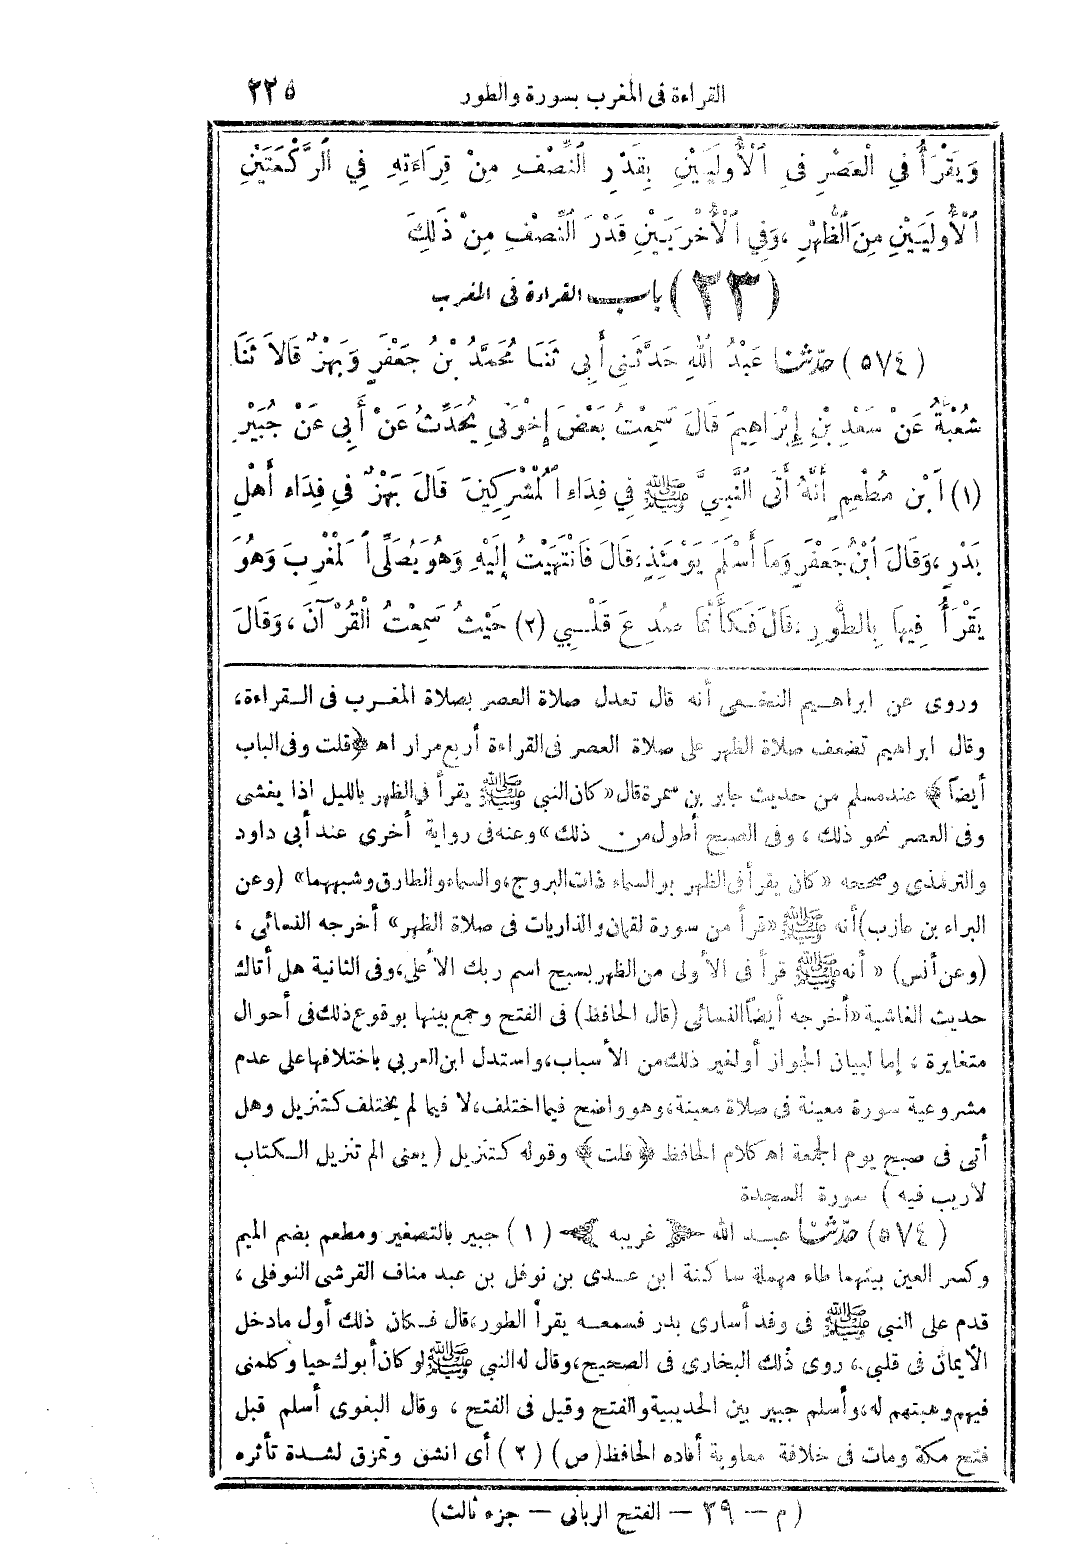 القراءة فى المغرب بسورة والطور ٢٢٥
وَيَقْرَأُ فِي الْعَصْرِ فِي ٱلْأُولَيَيْنِ بِقَدْرِ ٱلنِّصْفِ مِنْ قِرَاءَتِهِ فِي ٱلرَّكْعَتَيْنِ
ٱلْأُولَيَيْنِ مِنَ ٱلظُّهْرِ ، وَفِي ٱلْأُخْرَيَيْنِ قَدْرَ ٱلنِّصْفِ مِنْ ذَلِكَ
(٢٣) باب القراءة فى المغرب
(٥٧٤) حدّثنا عَبْدُ ٱللهِ حَدَّثَنِي أَبِي ثَنَا مُحَمَّدُ بْنُ جَعْفَرٍ وَبَهْزٌ قَالَا ثَنَا
شُعْبَةُ عَنْ سَعْدِ بْنِ إِبْرَاهِيمَ قَالَ سَمِعْتُ بَعْضَ إِخْوَتِي يُحَدِّثُ عَنْ أَبِي عَنْ جُبَيْرِ
(١) ٱبْنِ مُطْعِمٍ أَنَّهُ أَتَى ٱلنَّبِيَّ ﷺ فِي فِدَاءِ ٱلْمُشْرِكِينَ قَالَ بَهْزٌ فِي فِدَاءِ أَهْلِ
بَدْرٍ ، وَقَالَ ٱبْنُ جَعْفَرٍ وَمَا أَسْلَمَ يَوْمَئِذٍ ، قَالَ فَانْتَهَيْتُ إِلَيْهِ وَهُوَ يُصَلِّي ٱلْمَغْرِبَ وَهُوَ
يَقْرَأُ فِيهَا بِالطُّورِ ، قَالَ فَكَأَنَّمَا صُدِعَ قَلْبِي (٢) حَيْثُ سَمِعْتُ الْقُرْآنَ ، وَقَالَ
وروى عن ابراهيم النخعى أنه قال تعدل صلاة العصر بصلاة المغرب فى القراءة ،
وقال ابراهيم تضعف صلاة الظهر على صلاة العصر فى القراءة أربع مرار اهـ ﴿قلت وفى الباب
أيضاً﴾ عند مسلم من حديث جابر بن سمرة قال « كان النبي ﷺ يقرأ فى الظهر بالليل اذا يغشى
وفى العصر نحو ذلك ، وفى الصبح أطول من ذلك » وعنه فى رواية أخرى عند أبى داود
والترمذى وصححه « كان يقرأ فى الظهر بو السماء ذات البروج ، والسماء والطارق وشبههما » (وعن
البراء بن عازب) أنه ﷺ « قرأ من سورة لقمان والذاريات فى صلاة الظهر » أخرجه النسائى ،
(وعن أنس) « أنه ﷺ قرأ فى الأولى من الظهر بسبح اسم ربك الأعلى ، وفى الثانية هل أتاك
حديث الغاشية » أخرجه أيضاً النسائى (قال الحافظ) فى الفتح وجمع بينها بوقوع ذلك فى أحوال
متغايرة ، إما لبيان الجواز أو لغير ذلك من الأسباب ، واستدل ابن العربي باختلافها على عدم
مشروعية سورة معينة فى صلاة معينة ، وهو واضح فيما اختلف ، لا فيما لم يختلف كتنزيل وهل
أتى فى صبح يوم الجمعة اهـ كلام الحافظ ﴿قلت﴾ وقوله كتنزيل ( يعنى الم تنزيل الكتاب
لا ريب فيه ) سورة السجدة
(٥٧٤) حدّثنا عبد الله ﴿ غريبه ﴾ (١) جبير بالتصغير ومطعم بضم الميم
وكسر العين بينهما طاء مهملة ساكنة ابن عدى بن نوفل بن عبد مناف القرشى النوفلى ،
قدم على النبي ﷺ فى وفد أسارى بدر فسمعه يقرأ الطور ، قال فكان ذلك أول ما دخل
الأيمان فى قلبى ، روى ذلك البخارى فى الصحيح ، وقال له النبي ﷺ لو كان أبوك حيا وكلمنى
فيهم وهبتهم له ، وأسلم جبير بين الحديبية والفتح وقيل فى الفتح ، وقال البغوى أسلم قبل
فتح مكة ومات فى خلافة معاوية أفاده الحافظ (ص) (٢) أى انشق وتمزق لشدة تأثره
(م ــ ٢٩ ــ الفتح الربانى ــ جزء ثالث)